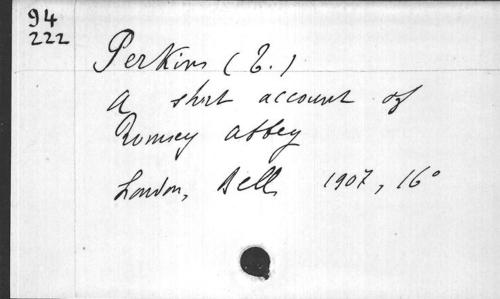 94
222
Perkins (T.)
A short account of
Romsey abbey
London, Bell 1907, 16°